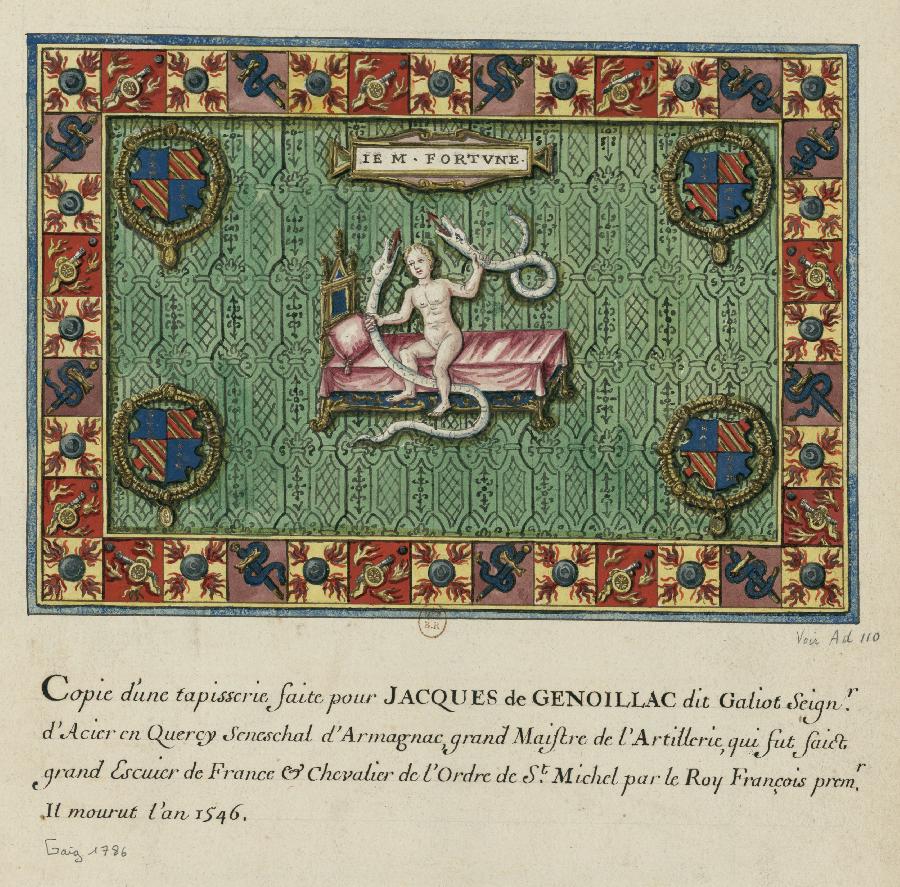 IE M · FORTVNE ·
B.R
Voir Ad 110
Copie d'une tapisserie faite pour JACQUES de GENOILLAC dit Galiot Seign.r
d'Acier en Quercy Seneschal d'Armagnac, grand Maistre de l'Artillerie, qui fut faict
grand Escuier de France & Chevalier de l'Ordre de St. Michel par le Roy François prem.r
Il mourut l'an 1546.
Gaig 1786